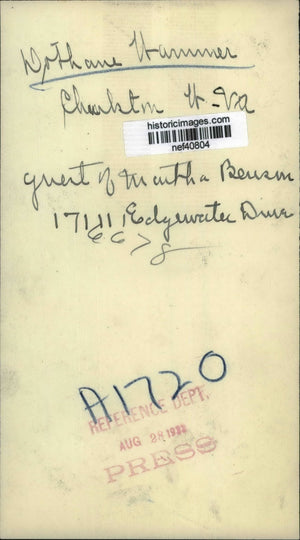 Dothane Hammer
Charlston W-Va
historicimages.com
nef40804
guest of Martha Benson
17111 Edgewater Drive
A1720
REFERENCE DEPT.
AUG 28 1933
PRESS